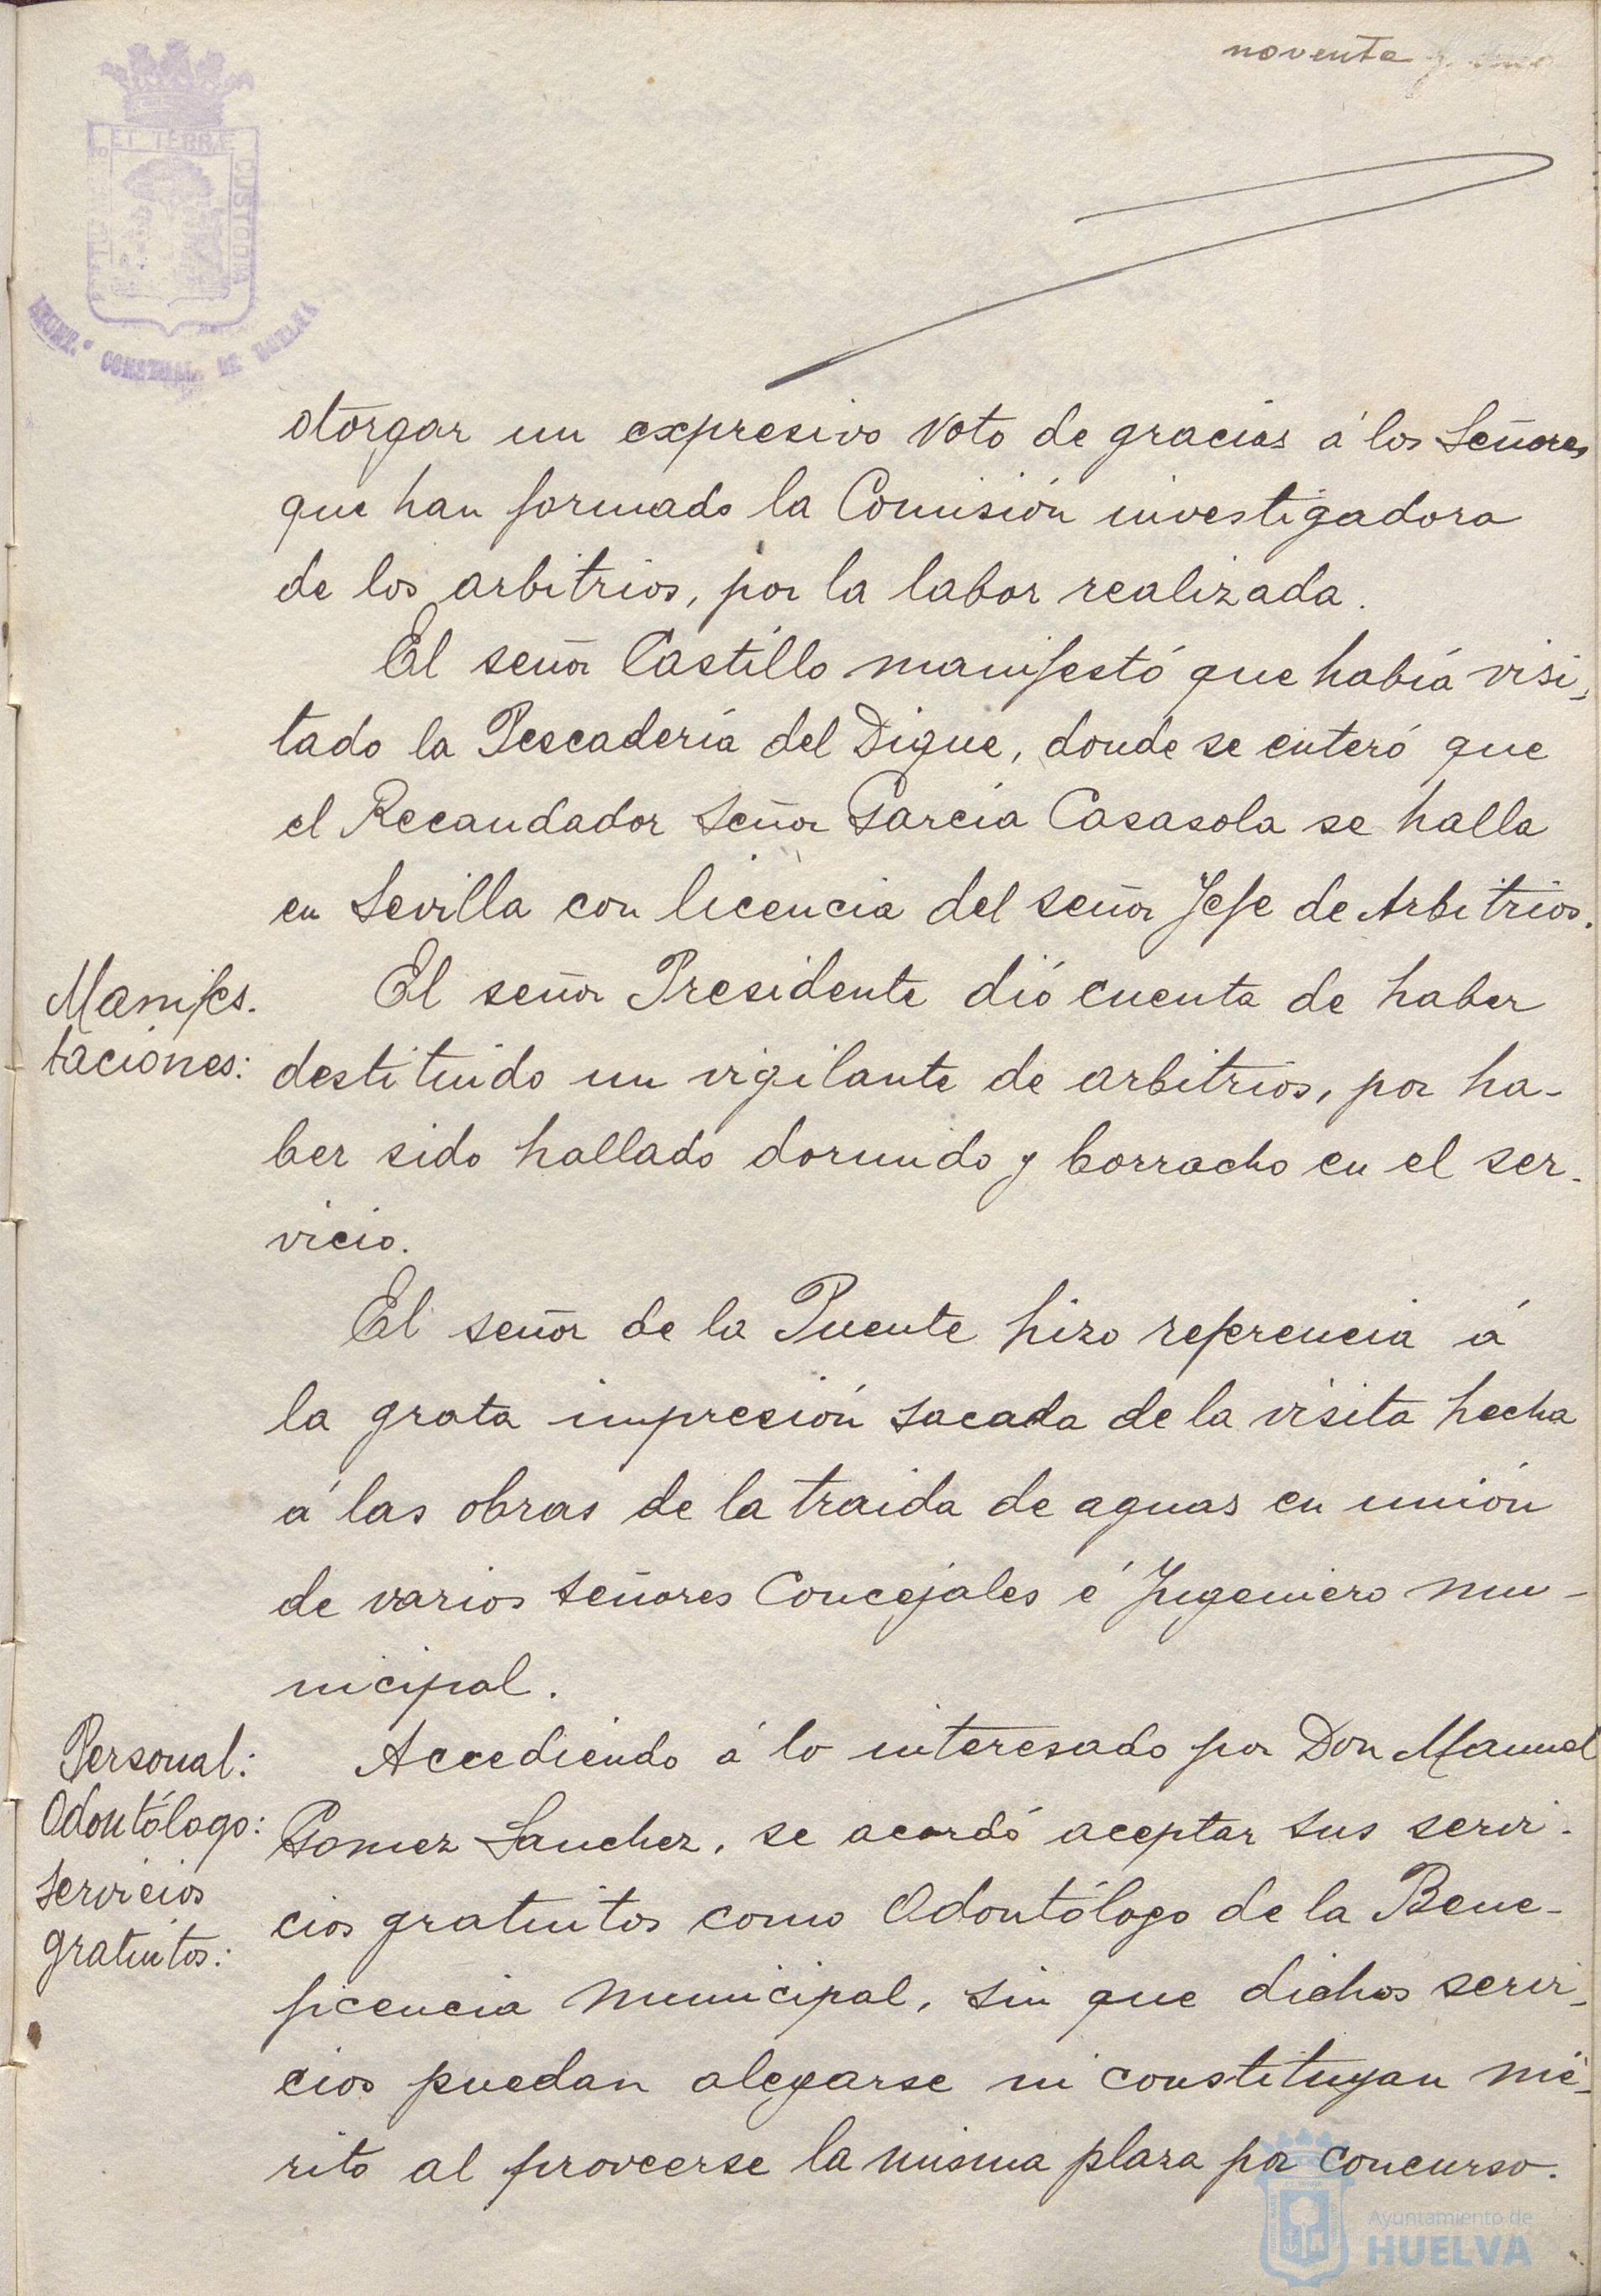 noventa y
ET TERRÆ CUSTODIA
AYUNT.º CONSTNAL. DE HUELVA
otorgar un expresivo voto de gracias á los Señores
que han formado la Comisión investigadora
de los arbitrios, por la labor realizada.
El señor Castillo manifestó que había visi-
tado la Pescadería del Dique, donde se enteró que
el Recaudador Señor García Casasola se halla
en Sevilla con licencia del señor Jefe de Arbitrios.
Manifes-
taciones:
El señor Presidente dió cuenta de haber
destituido un vigilante de arbitrios, por ha-
ber sido hallado dormido y borracho en el ser-
vicio.
El señor de la Puente hizo referencia á
la grata impresión sacada de la visita hecha
á las obras de la traida de aguas en unión
de varios Señores Concejales é Ingeniero mu-
nicipal.
Personal:
Odontólogo:
Servicios
gratuitos:
Accediendo á lo interesado por Don Manuel
Gomez Sanchez, se acordó aceptar sus servi-
cios gratuitos como Odontólogo de la Bene-
ficencia Municipal, sin que dichos servi-
cios puedan alegarse ni constituyan mé-
rito al proveerse la misma plaza por concurso.
Ayuntamiento de
HUELVA